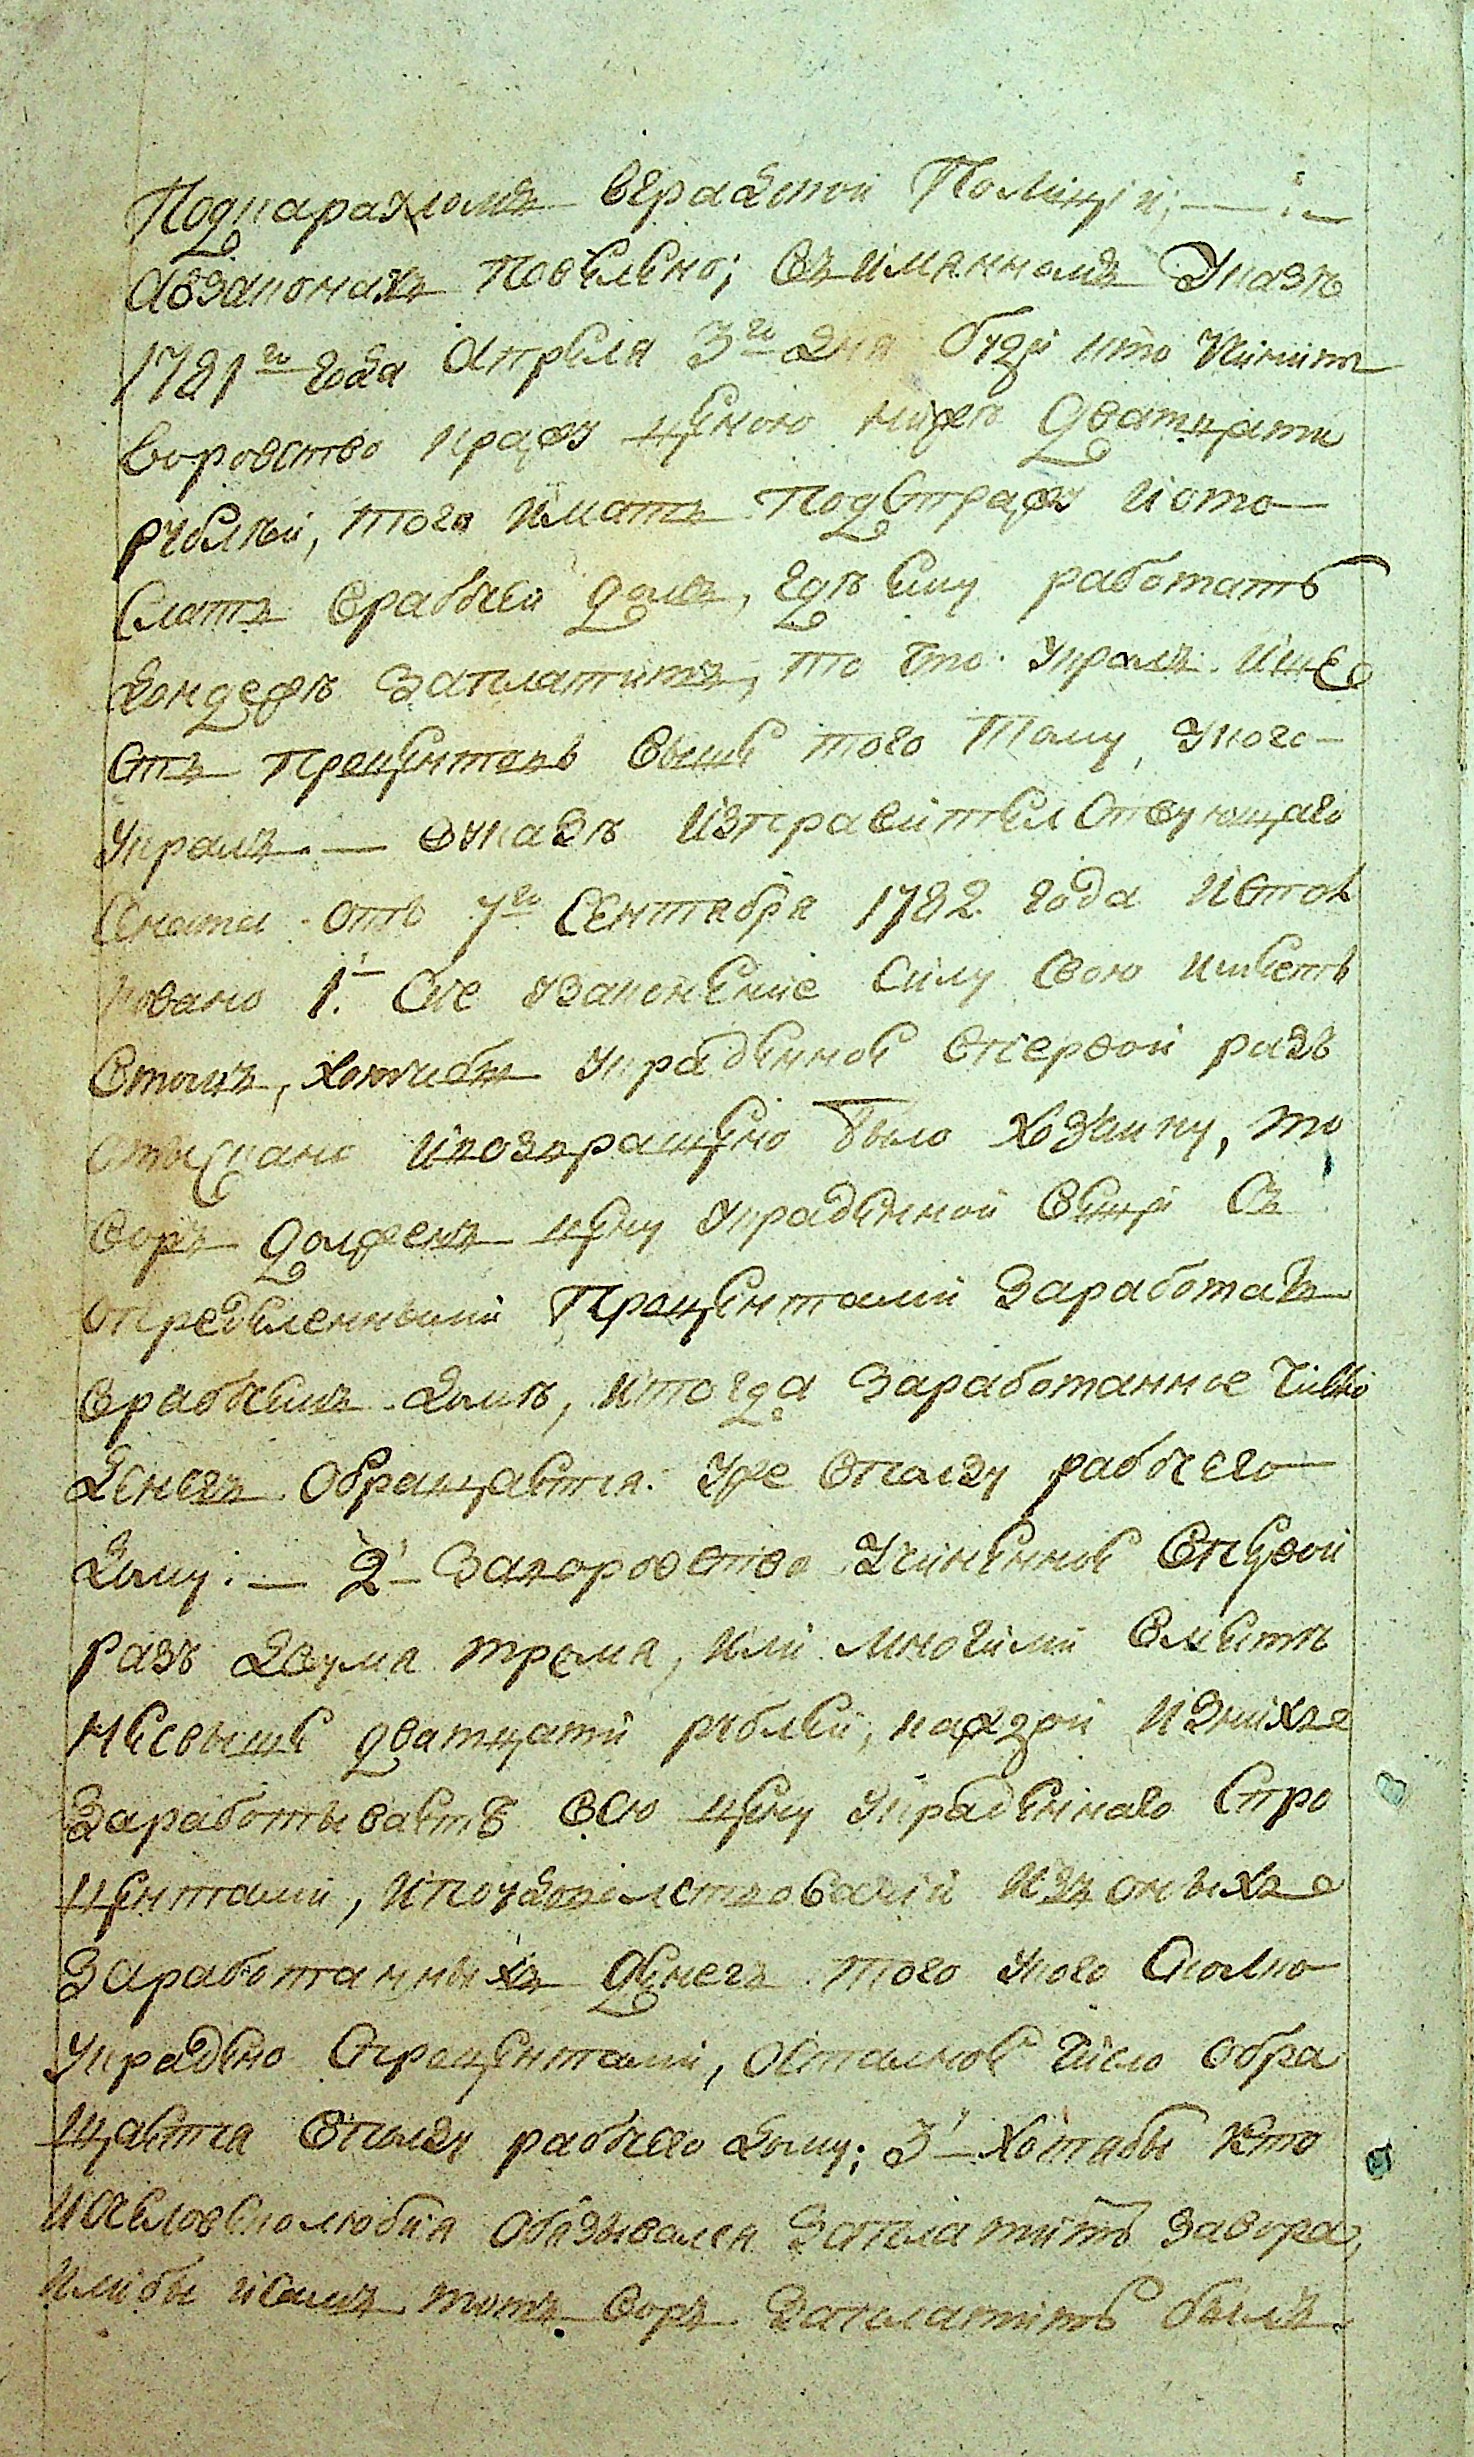 Подкараулом вградской Полиции; — :
Авзаконах повелено; въ имянномъ Указѣ
1781го года Апреля 3го дня буде кто учинитъ
воровство кражу ценою ниже дватцати
рублей, того имать подстражу иото
слать врабочей домъ, гдѣ ему работать
дондеже заплатитъ, то что укралъ ише
сть процентовъ свыше того тому, укого
укралъ. — вуказѣ изправительствующаго
Сената отъ 7го Сентября 1782. года истол
ковано 1е. Сие узаконение силу свою имеетъ
втомъ, хотябы украденное впервой разъ
отыскано ивозвращено было хозяину, то
воръ долженъ цену украденной вещи съ
определенными процентами заработать
врабочемъ домѣ, итогда заработанное число
денегъ обращается уже впользу рабочего
дому: — 2е Заворовство учиненное впервой
разъ двумя тремя, или многими вместѣ
несвыше дватцати рублей, каждой изнихъ
заработываетъ всю цену украденнаго спро
центами, ипоудовольствовании изъ оныхъ
заработанныхъ денегъ того укого сколко
украдено спроцентами, осталное число обра
щается впользу рабочего дому; 3е хотябы кто
исчеловеколюбия обязывался заплатить завора,
илибы исамъ тотъ воръ заплатить былъ